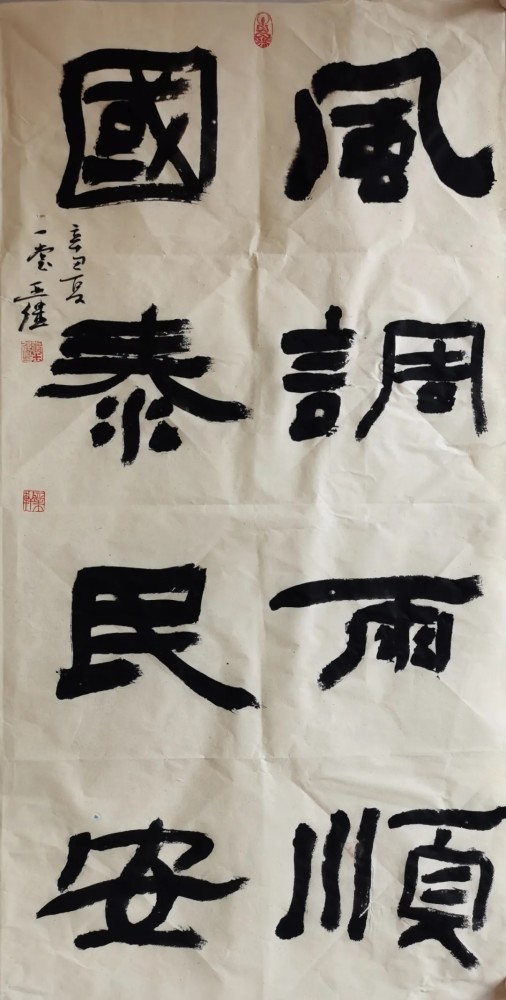 風調雨順
國泰民安
辛丑夏
一堂正繼